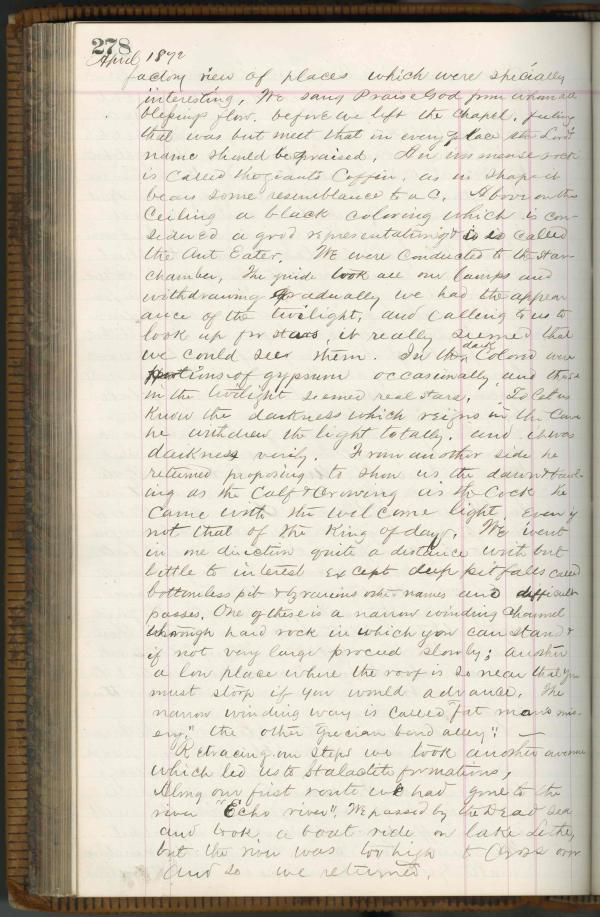 278
April 1872
factory view of places which were specially
interesting. We sang Praise God from whom all
blessings flow. before we left the chapel. feeling
that was but meet that in every place the Lord's
name should be praised. An immense rock
is called the giants Coffin, as in shape it
bears some resemblance to a C. Above on the
Ceiling a black coloring which is con-
sidered a good representation & is so called
the Ant Eater. We were conducted to the star
chamber, The guide took all our lamps and
withdrawing gradually we had the appear
ance of the twilight, and calling to us to
look up for stars, it really seemed that
we could see them. In the dark Colored were
portions of gypsum occasionally, and these
in the twilight seemed real stars. To let us
know the darkness which reigns in the Cave
he withdrew the light totally. and it was
darkness verily. From another side he
returned proposing to show us the dawn & bawl-
ing as the Calf & Crowing as the Cock he
came with the welcome light, even if
not that of the King of day. We went
in one direction quite a distance with but
little to interest except deep pit falls called
bottomless pit & various other names and difficult
passes. One of these is a narrow winding Channel
through hard rock in which you can stand &
if not very large proceed slowly; another
a low place where the roof is so near that you
must stoop if you would advance. The
narrow winding way is called "fat mans mis-
ery," the other "Grecian bend alley". —
Retracing our steps we took another avenue
which led us to Stalactite formations,
Along our first route we had gone to the
river "Echo river". We passed by the Dead Sea
and took a boat ride on lake Lethe,
but the river was too high to cross over
and so we returned.